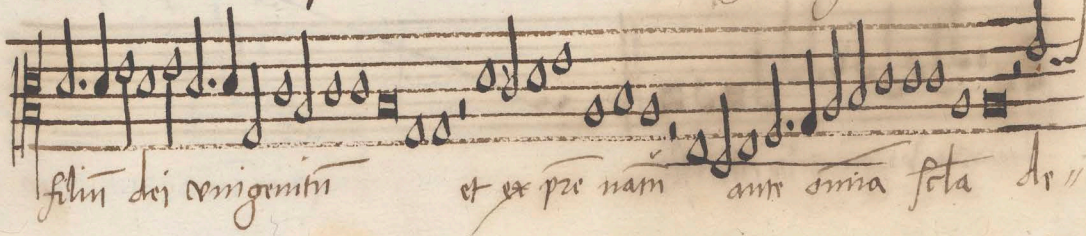 filiū dei vnigenitū et ex p̄re natū ante om̄ia sc̄la de〃